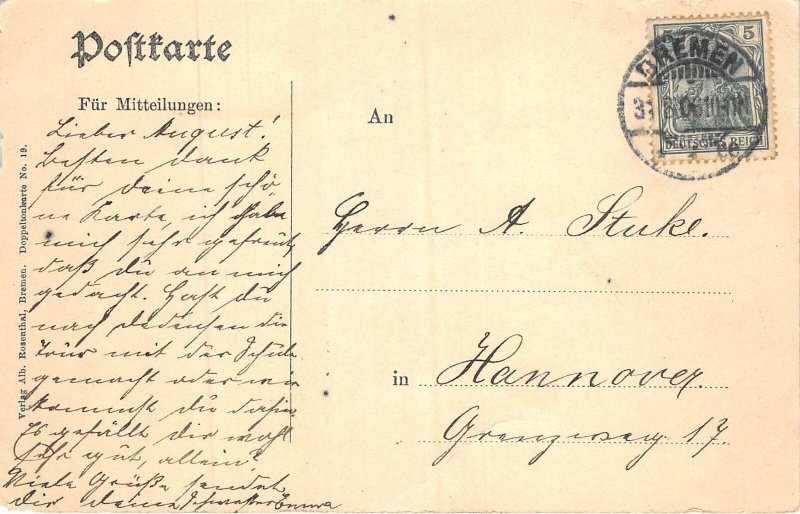 Postkarte
Für Mitteilungen:
Lieber August!
besten Dank
für deine schö-
ne Karte, ich habe
mich sehr gefreut,
daß du an mich
gedacht. Hast du
nach die
Tour mit der Schule
gemacht oder wie
kommst du dahin
Es gefällt dir wohl
sehr gut, allein?
Viele Grüße sendet
dir deine Schwester Emma
Verlag Alb. Rosenthal, Bremen. Doppeltonkarte No. 19.
An
Herrn A. Stuke.
in Hannover.
Grenzweg 17
5
DEUTSCHES REICH
BREMEN